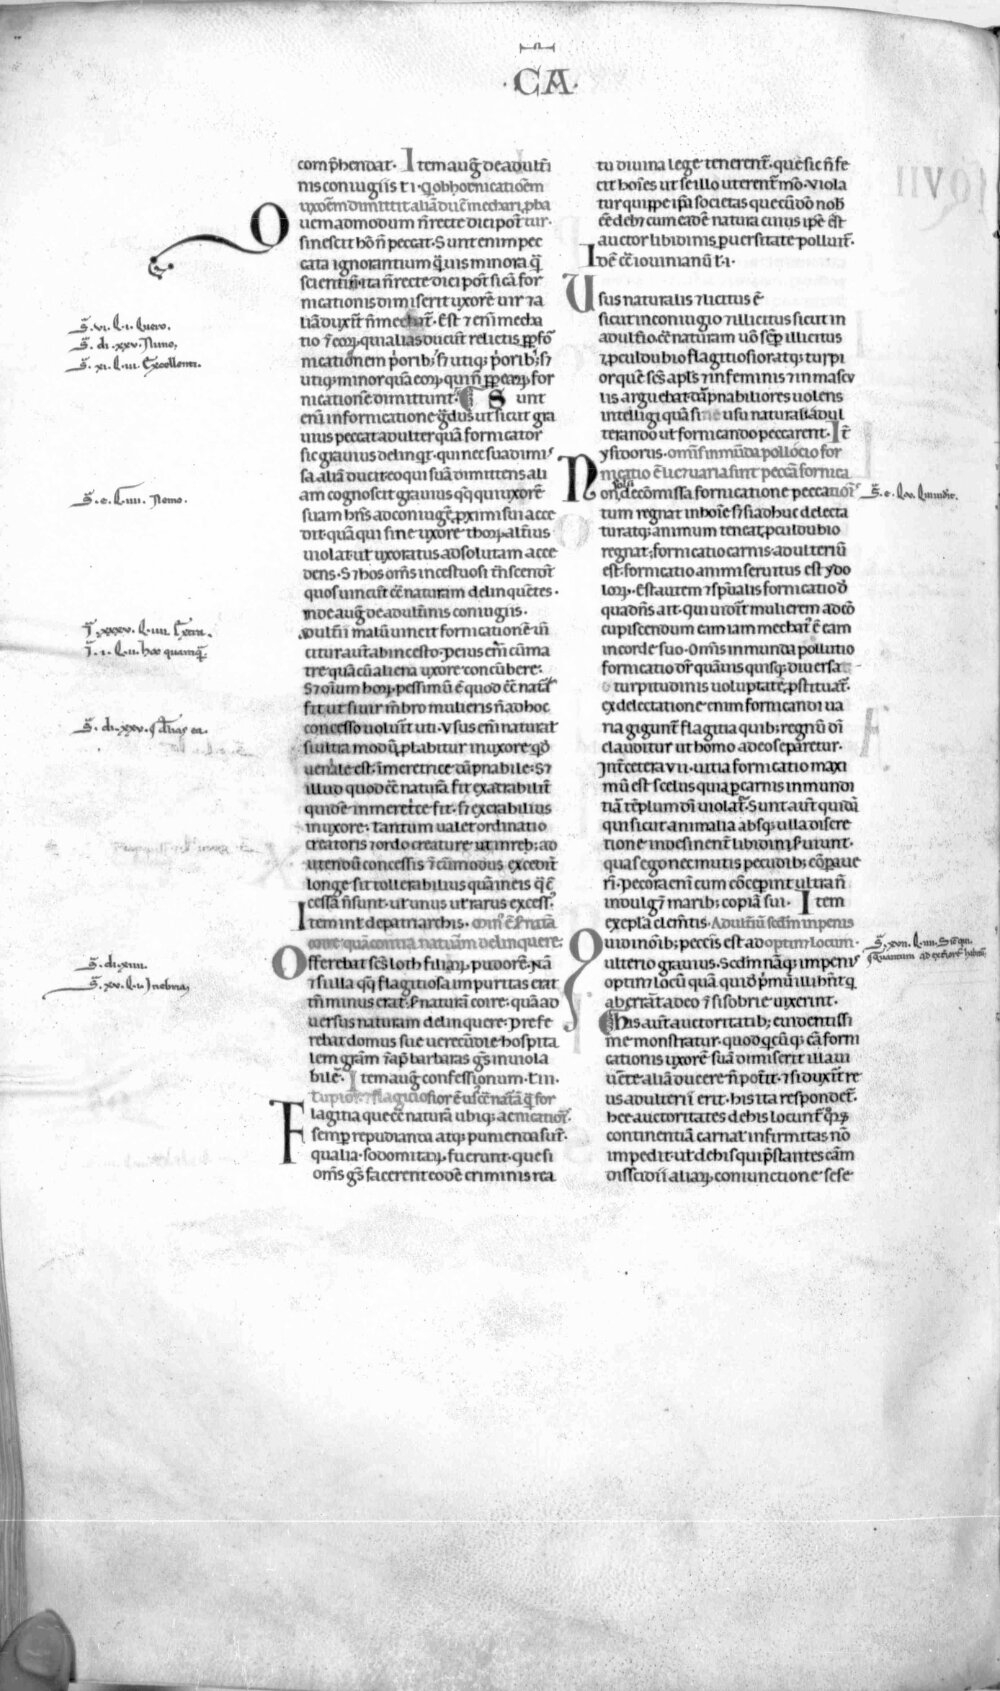 ·CA·
comp̄hendat· Item auḡ de adult̄i
nis coniugiis t̄ i· Q̇ ob fornicatiōem
uxoēm dimittit ⁊ aliā duc̄ mechari p̄ba
Quem admodum n̄ recte dici pot̄ tur·
si nescit hō n̄ peccat· Sunt enim pec
cata ignorantium q̄uis minora q̄
scientiū· ita n̄ recte dici pot̄ si cā for
nicationis dimiserit uxorē uir ⁊ a
liā duxit̄ n̄ mechat̄· Est ⁊ eni mecha
tio ⁊ eoꝝ qui alias ducūt relictis ꝓpt̄ fo
nicationem p̄orib; s; utiq; p̄orib; s;
utiq; minor quā eoꝝ qui n̄ ꝓpt̄ eaꝝ for
nicationē dimittunt· ¶ Sunt
enī in fornicatione ḡdus ut sicut gra
uius peccat adulter quā fornicator
sic grauius delinq̄t· qui nec sua dimi
sa aliā ducit· eo qui suā dimittens ali
am cognoscit grauius q̄q̄ qui uxorē
suam bn̄s ad coniugē ꝓximi sui acce
dit· quā qui sine uxore thoꝝ alt̄ius
uiolat· ut uxoratus ad solutam acce
dens· S; hos om̄s incestuosi t̄nscendt̄
quos uincūt cc̄ naturam delinquētes·
Inde auḡ de adult̄inis coniugiis·
Adult̄ii malū uincit fornicationē uī
citur aut̄ ab incesto· Peius em̄ cū ma
tre quā cū aliena uxore concūbere·
S; oīum hoꝝ pessimū ē quod cc̄ natā
fit ut si uir mb̄ro mulieris n̄ ad hoc
concesso uolu̅it uti· Vsus em̄ naturat̄
si ultra modū ꝓlabitur in uxore q̇d̄
ueniale est· in meretrice dāpnabile· S;
illud quod cc̄ naturā fit execrabilit̄
quidē in meret̄ce fit· s; execrabilius
in uxore· Tantum ualet ordinatio
creatoris ⁊ ordo creature ut in reb; ad
utendū concessis ⁊ cū modus excedit̄
longe sit tollerabilius quā in eis q̄ cō
cessa n̄ sunt· ut unus ut rarus excess;
Item in t̄ de patriarchis·
coire quā contra naturam delinquere·
Offerebat sc̄s loth filiaꝝ pudorē· Nā
⁊ si illa q̄q̄ flagitiosa impuritas erat
tn̄ minus erat· s̄ naturā coire· quā ad
uersus naturam delinquere· prefe
rebat domus sue uerecūdie hospita
lem grām ⁊ ap̄ barbaras ḡs inuiola
bilē· Item auḡ confessionum· t̄ iii·
Turpior ⁊ flagiciosior ē us; cc̄ natā q̄ for
Flagitia que cc̄ naturā ubiq; ac nicatioī·
semꝑ repudianda atq; punienda sūt·
qualia· sodomitaꝝ fuerunt· que si
om̄s ḡs facerent eodē criminis rea
tu diuina lege tenerent̄· que sic n̄ fe
cit hōies ut se illo uterent̄ mō· Viola
tur quippe ip̄a societas que cū dō nob̄
ēē deb; cum eadē natura cuius ip̄e ēst
auctor libidinis ꝑuersitate polluit̄·
Idē cc̄ iouinianū t̄· i·
Vsus naturalis ⁊ licitus ē
sicut in coniugio ⁊ illicitus sicut in
adult̄io· cc̄ naturam uō semꝑ illicitus
⁊ ꝓcul dubio flagitiosior atq; turpi
or quē sc̄s apl̄s ⁊ in feminis ⁊ in mascu
lis arguebat· dāpnabiliores uolens
intelligi quā si ne usu naturali adul
terando ut fornicando peccarent· It̄
ysidorus· omīs inmūda pollocio for
nicatio ē licz uaria sint peccā fornica
Non de cōmissa fornicatione peccanoī
tum regnat in hoīe s; si adhuc delecta
tur atq; animum teneat ꝓcul dubio
regnat; fornicatio carnis· adulteriū
est· fornicatio animi seruitus est ydo
loꝝ· Est autem ⁊ sp̄ualis fornicatio d̄
qua dn̄s ait· qui uid̄it mulierem ad cō
cupiscendum eam iam mechat̄ ē eam
in corde suo· Om̄is inmunda pollutio
fornicatio dr̄ quāuis quisq; diuersa
turpitudinis uoluptatē p̄stituat̄·
ex delectatione enim fornicandi ua
ria gigunt̄ flagitia quib; regnū dī
clauditur ut homo a deo separetur·
Int̄ cetera vii· uitia fornicatio maxi
mū est scelus quia ꝑ carnis inmundi
tiā tēplum dī uiolat̄· Sunt aut̄ quidā
qui sicut animalia absq; ulla discre
tione indesinent̄ libidini seruiunt·
quas ego nec mutis pecudib; cōpaue
ri· pecora enī cum cōcepint ultra n̄
indulg; marib; copiā sui· Item
exepla clem̄tis· Adult̄iū sedm̄ in penis
Quid in oīb; pecc̄is est ad optinet locum·
ulterio grauius· Sedm̄ nāq; in penis
optinet locū quā quid̄ p̄mū illi hn̄t q̇
aberrāt a deo ⁊ si sobrie uixerint·
¶ His aut̄ auctoritatib; euidentissi
me monstratur· quod q̇cūq; cā forni
cationis uxorē suā dimiserit illa ui
uēte aliā ducere n̄ potit̄· ⁊ si duxit̄ re
us adulterii erit· his ita respondet̄·
hec auctoritates de his locunt̄ q̇ꝝ
continentiā carnat̄ infirmitas nō
impedit· ut de his qui p̄stantes cām
dissidii aliaꝝ coniunctione sese
s̄· vi· q̄· i· Quero·
s̄· di· xxv· Nunc,
s̄· xi· q̄· iii· Excellenti·
s̄· e· q̄· iiii· Nemo·
J̄· xxxv· q̄· iii· Extra·
J̄· i· q̄· i· hoc quamq̄·
s̄· di· xxv· §
s̄· di· xiii·
s̄· xv· q̄· i· Inebria,
s̄· e· q̄· v·
s̄· xvii· q̄· iiii· Sicut
q̇quantum ad